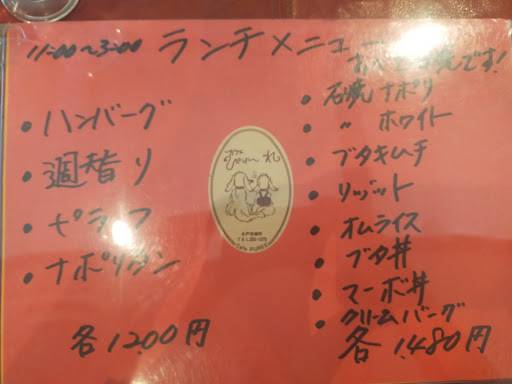 11:00~3:00 ランチメニュー
・ハンバーグ
・週替り
・ピラフ
・ナポリタン
各1,200円
石焼です!
・石焼ナポリ
・〃 ホワイト
・ブタキムチ
・リゾット
・オムライス
・ブタ丼
・マーボ丼
・クリームバーグ
各1,480円
カフェ